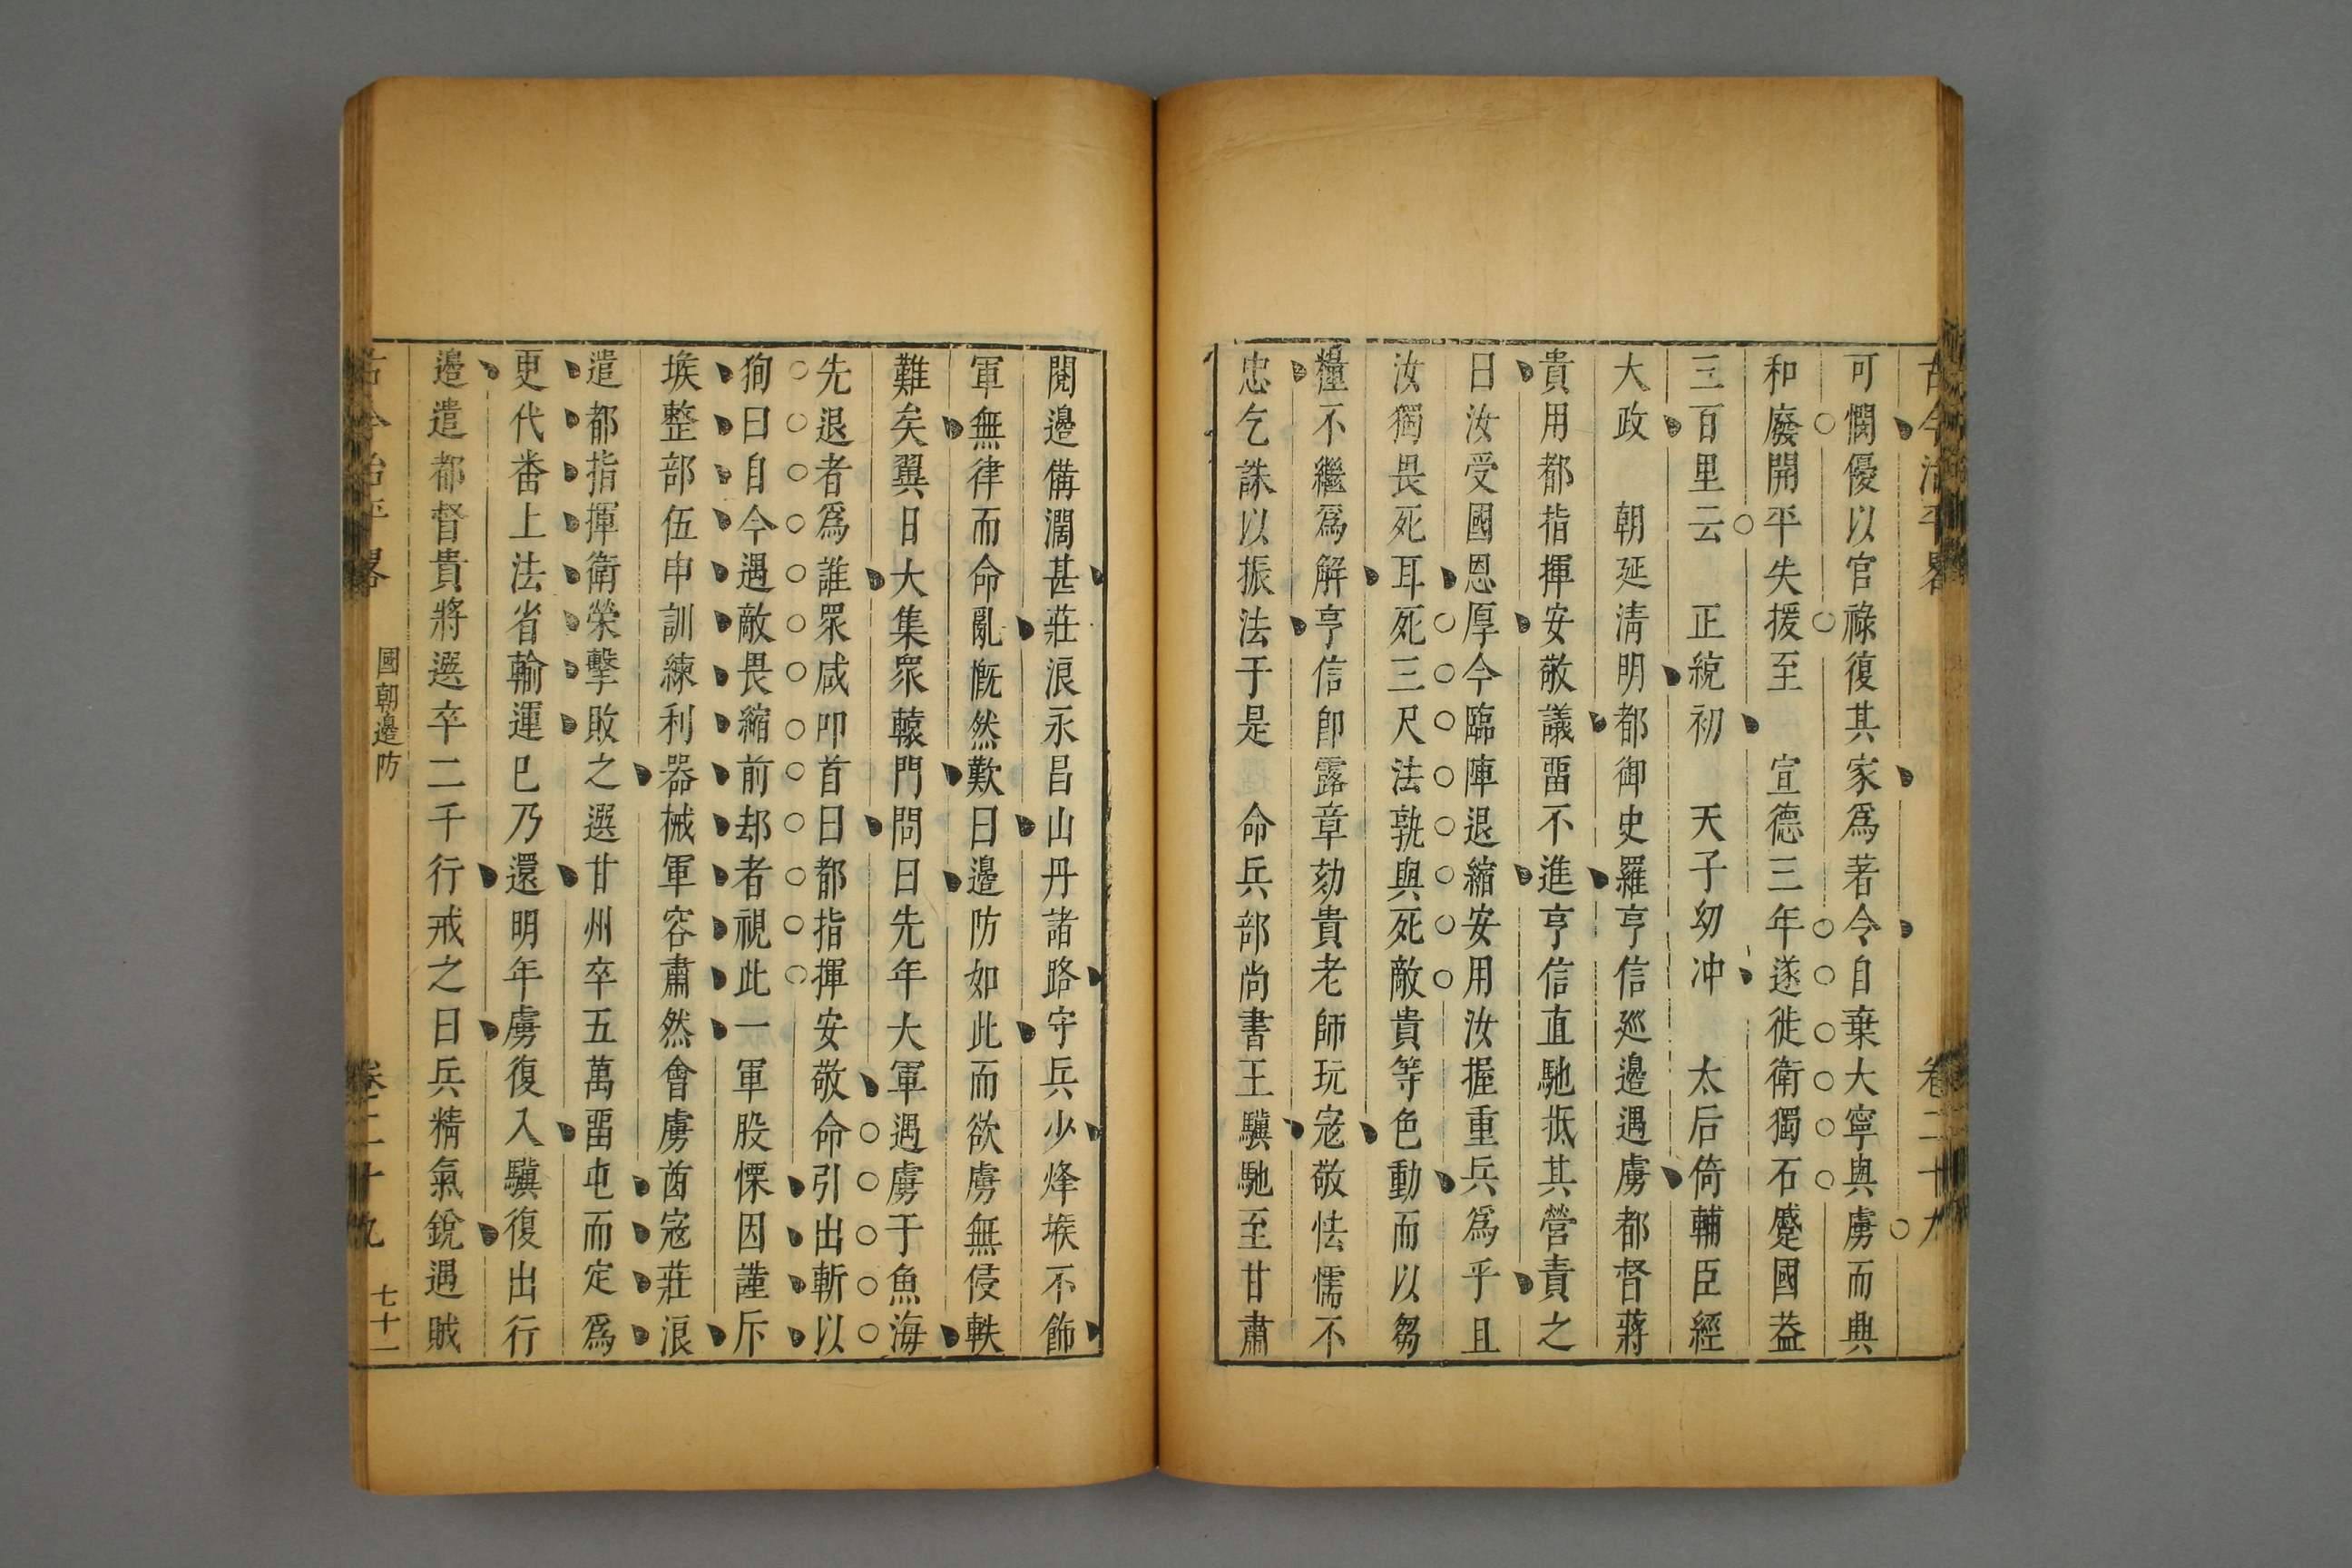 古今治平畧 卷二十九
可憫優以官祿復其家爲著令自棄大寧與虜而典
和廢開平失援至 宣德三年遂徙衛獨石蹙國益
三百里云 正統初 天子幼冲 太后倚輔臣經
大政 朝延清明都御史羅亨信廵邊遇虜都督蔣
貴用都指揮安敬議畱不進亨信直馳抵其營責之
曰汝受國恩厚今臨陣退縮安用汝握重兵爲乎且
汝獨畏死耳死三尺法孰與死敵貴等色動而以芻
糧不繼爲解亨信卽露章劾貴老師玩寇敬怯懦不
忠乞誅以振法于是 命兵部尚書王驥馳至甘肅
閱邊備濶甚莊浪永昌山丹諸路守兵少烽堠不飾
軍無律而命亂慨然歎曰邊防如此而欲虜無侵軼
難矣翼日大集衆轅門問曰先年大軍遇虜于魚海
先退者爲誰衆咸叩首曰都指揮安敬命引出斬以
狥曰自今遇敵畏縮前却者視此一軍股慄因謹斥
堠整部伍申訓練利器械軍容肅然會虜酋寇莊浪
遣都指揮衛榮擊敗之選甘州卒五萬畱屯而定爲
更代畨上法省輸運已乃還明年虜復入驥復出行
邊遣都督貴將選卒二千行戒之曰兵精氣銳遇賊
古今治平畧 國朝邊防 卷二十九 七十一